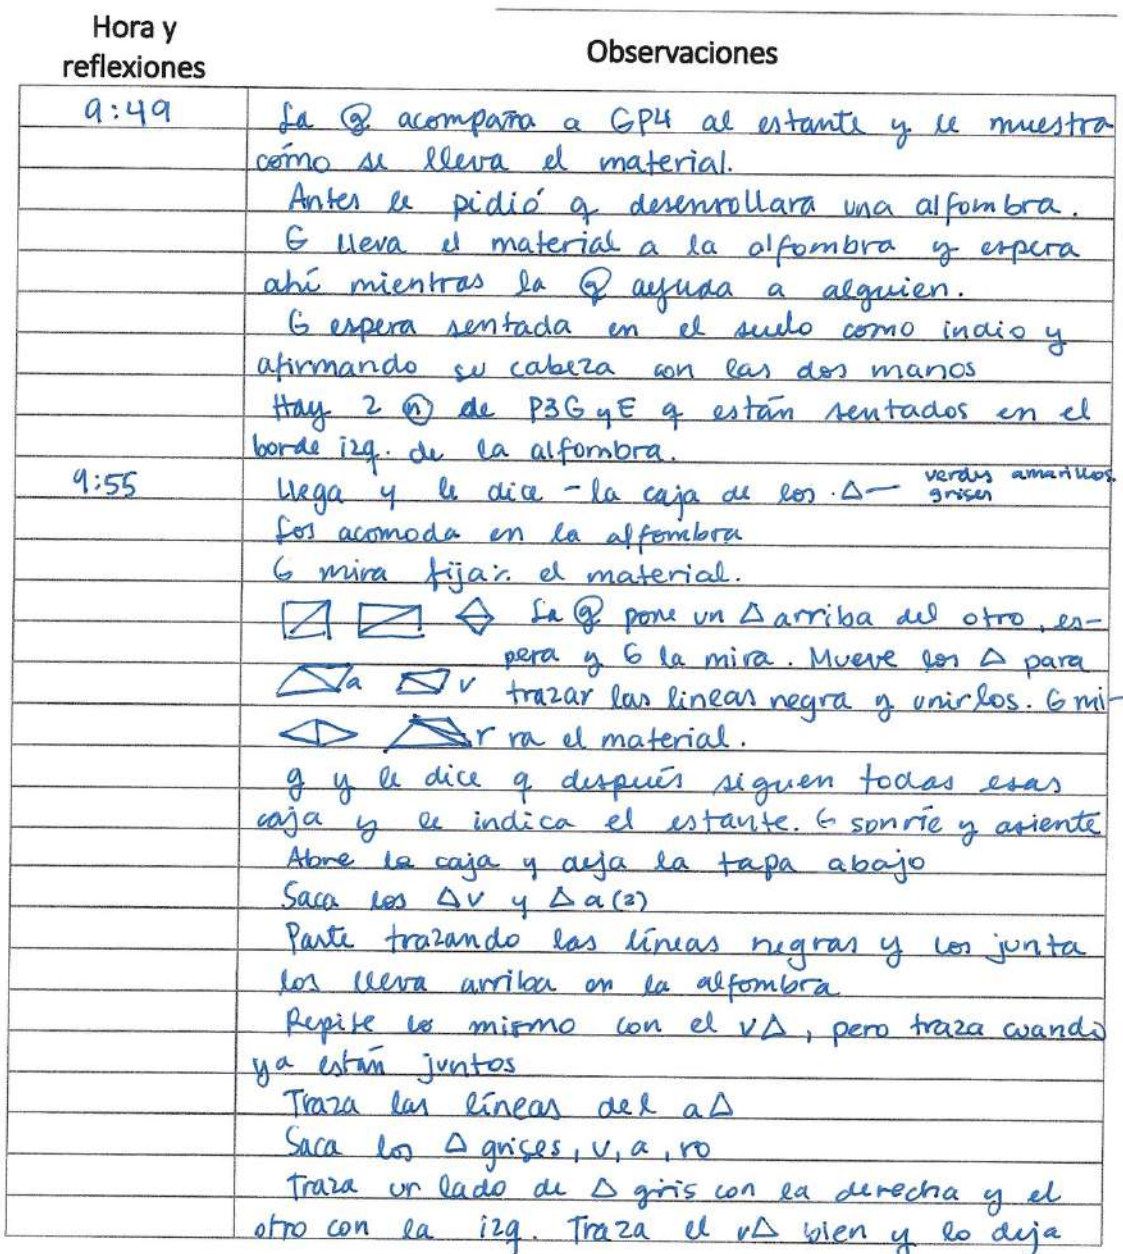 Hora y
reflexiones
Observaciones
9:49
La ⓖ acompaña a GP4 al estante y le muestra
cómo se lleva el material.
Antes le pidió q desenrollara una alfombra.
G lleva el material a la alfombra y espera
ahí mientras la ⓖ ayuda a alguien.
G espera sentada en el suelo como indio y
afirmando su cabeza con las dos manos
Hay 2 ⓝ de P3G y E q están sentados en el
borde izq. de la alfombra.
9:55
Llega y le dice - la caja de los Δ — verdes amarillos
grises
Los acomoda en la alfombra
G mira fija:. el material.
La ⓖ pone un Δ arriba del otro, es-
pera y G la mira. Mueve los Δ para
a v trazar las lineas negra y unirlos. G mi-
r ra el material.
g y le dice q después siguen todas esas
caja y le indica el estante. G sonríe y asiente
Abre la caja y deja la tapa abajo
Saca los Δv y Δa(2)
Parte trazando las líneas negras y los junta
los lleva arriba en la alfombra
Repite lo mismo con el vΔ, pero traza cuando
ya están juntos
Traza las líneas del aΔ
Saca los Δ grises, v, a, ro
Traza un lado de Δ gris con la derecha y el
otro con la izq. Traza el vΔ bien y lo deja